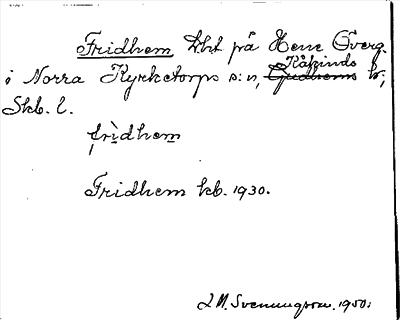 Fridhem Lht på Hene Överg.
i Norra Kyrketorps s:n, Gudhems Kåkinds h;
Skb. l.
frìdhem
Fridhem kb. 1930.
L M. Svenungsson. 1950.